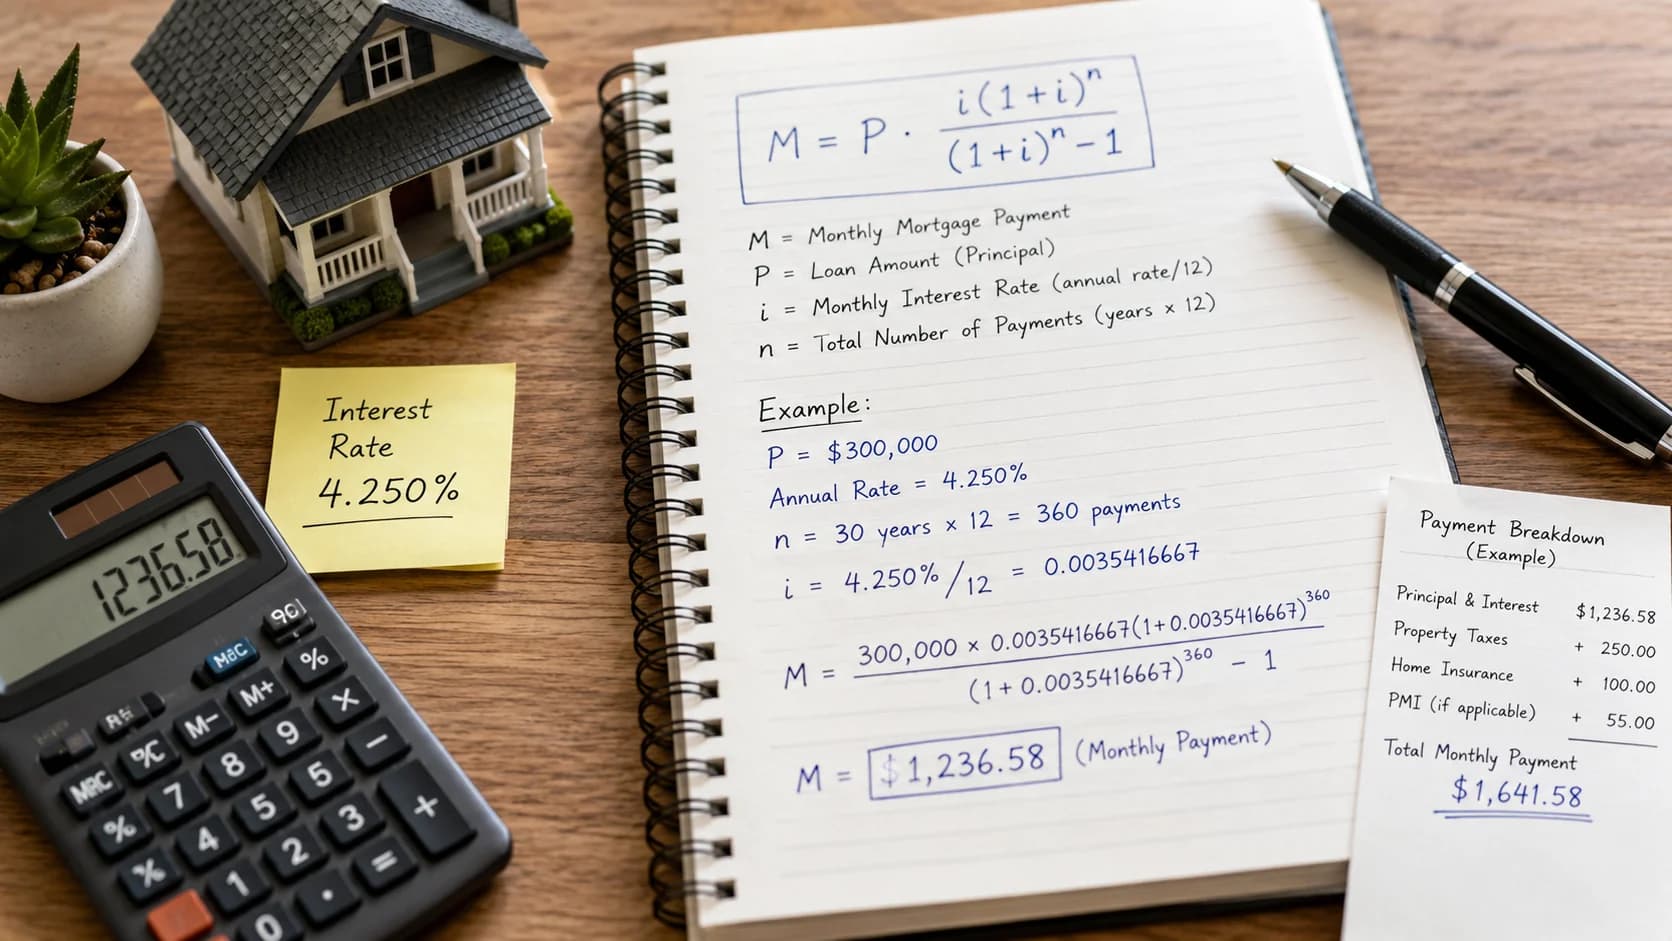 M = P · i(1+i)ⁿ / (1+i)ⁿ - 1
M = Monthly Mortgage Payment
P = Loan Amount (Principal)
i = Monthly Interest Rate (annual rate/12)
n = Total Number of Payments (years × 12)
Example:
P = $300,000
Annual Rate = 4.250%
n = 30 years × 12 = 360 payments
i = 4.250%/12 = 0.0035416667
M = 300,000 × 0.0035416667(1+0.0035416667)³⁶⁰ / (1+0.0035416667)³⁶⁰ - 1
M = $1,236.58 (Monthly Payment)
Interest
Rate
4.250%
1236.58
M+
%
M-
9
×
MRC
7
8
5
-
%
4
5
3
+
1
2
=
0
.
Payment Breakdown
(Example)
Principal & Interest $1,236.58
Property Taxes + 250.00
Home Insurance + 100.00
PMI (if applicable) + 55.00
Total Monthly Payment
$1,641.58